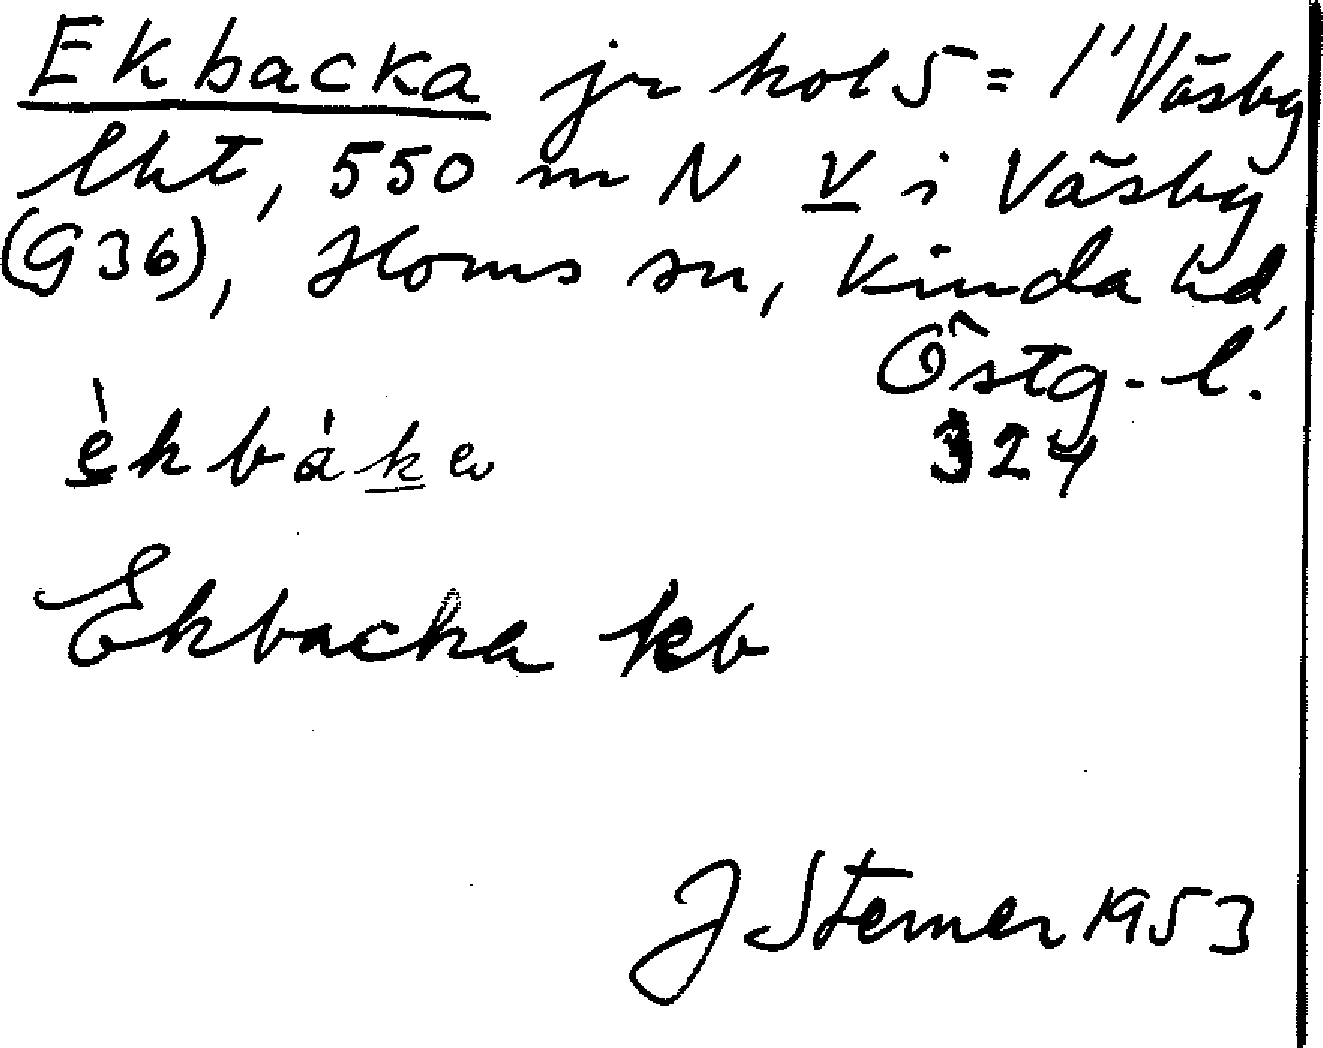 Ekbacka jr kol 5 = 1' Väsby
lht, 550 m N V i Väsby
(G36), Horns sn, Kinda hd,
Östg-l.
324
èkbàka
Ekbacka kb
J Sterner 1953